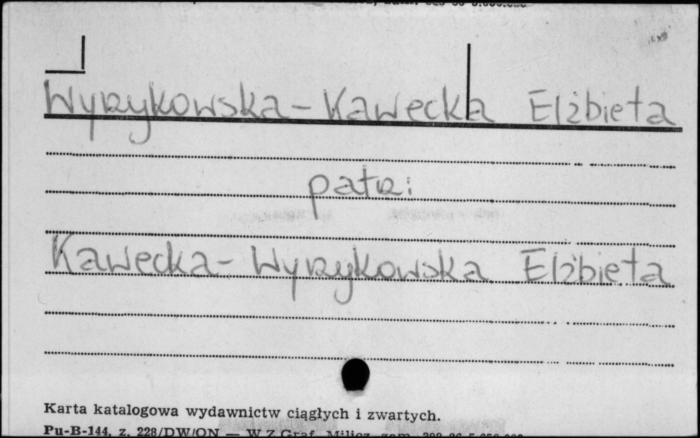 Wyrzykowska-Kawecka Elżbieta
patrz:
Kawecka-Wyrzykowska Elżbieta
Karta katalogowa wydawnictw ciągłych i zwartych.
Pu-B-144, z. 228/DW/ON — W.Z.Graf. Milicz, zam.